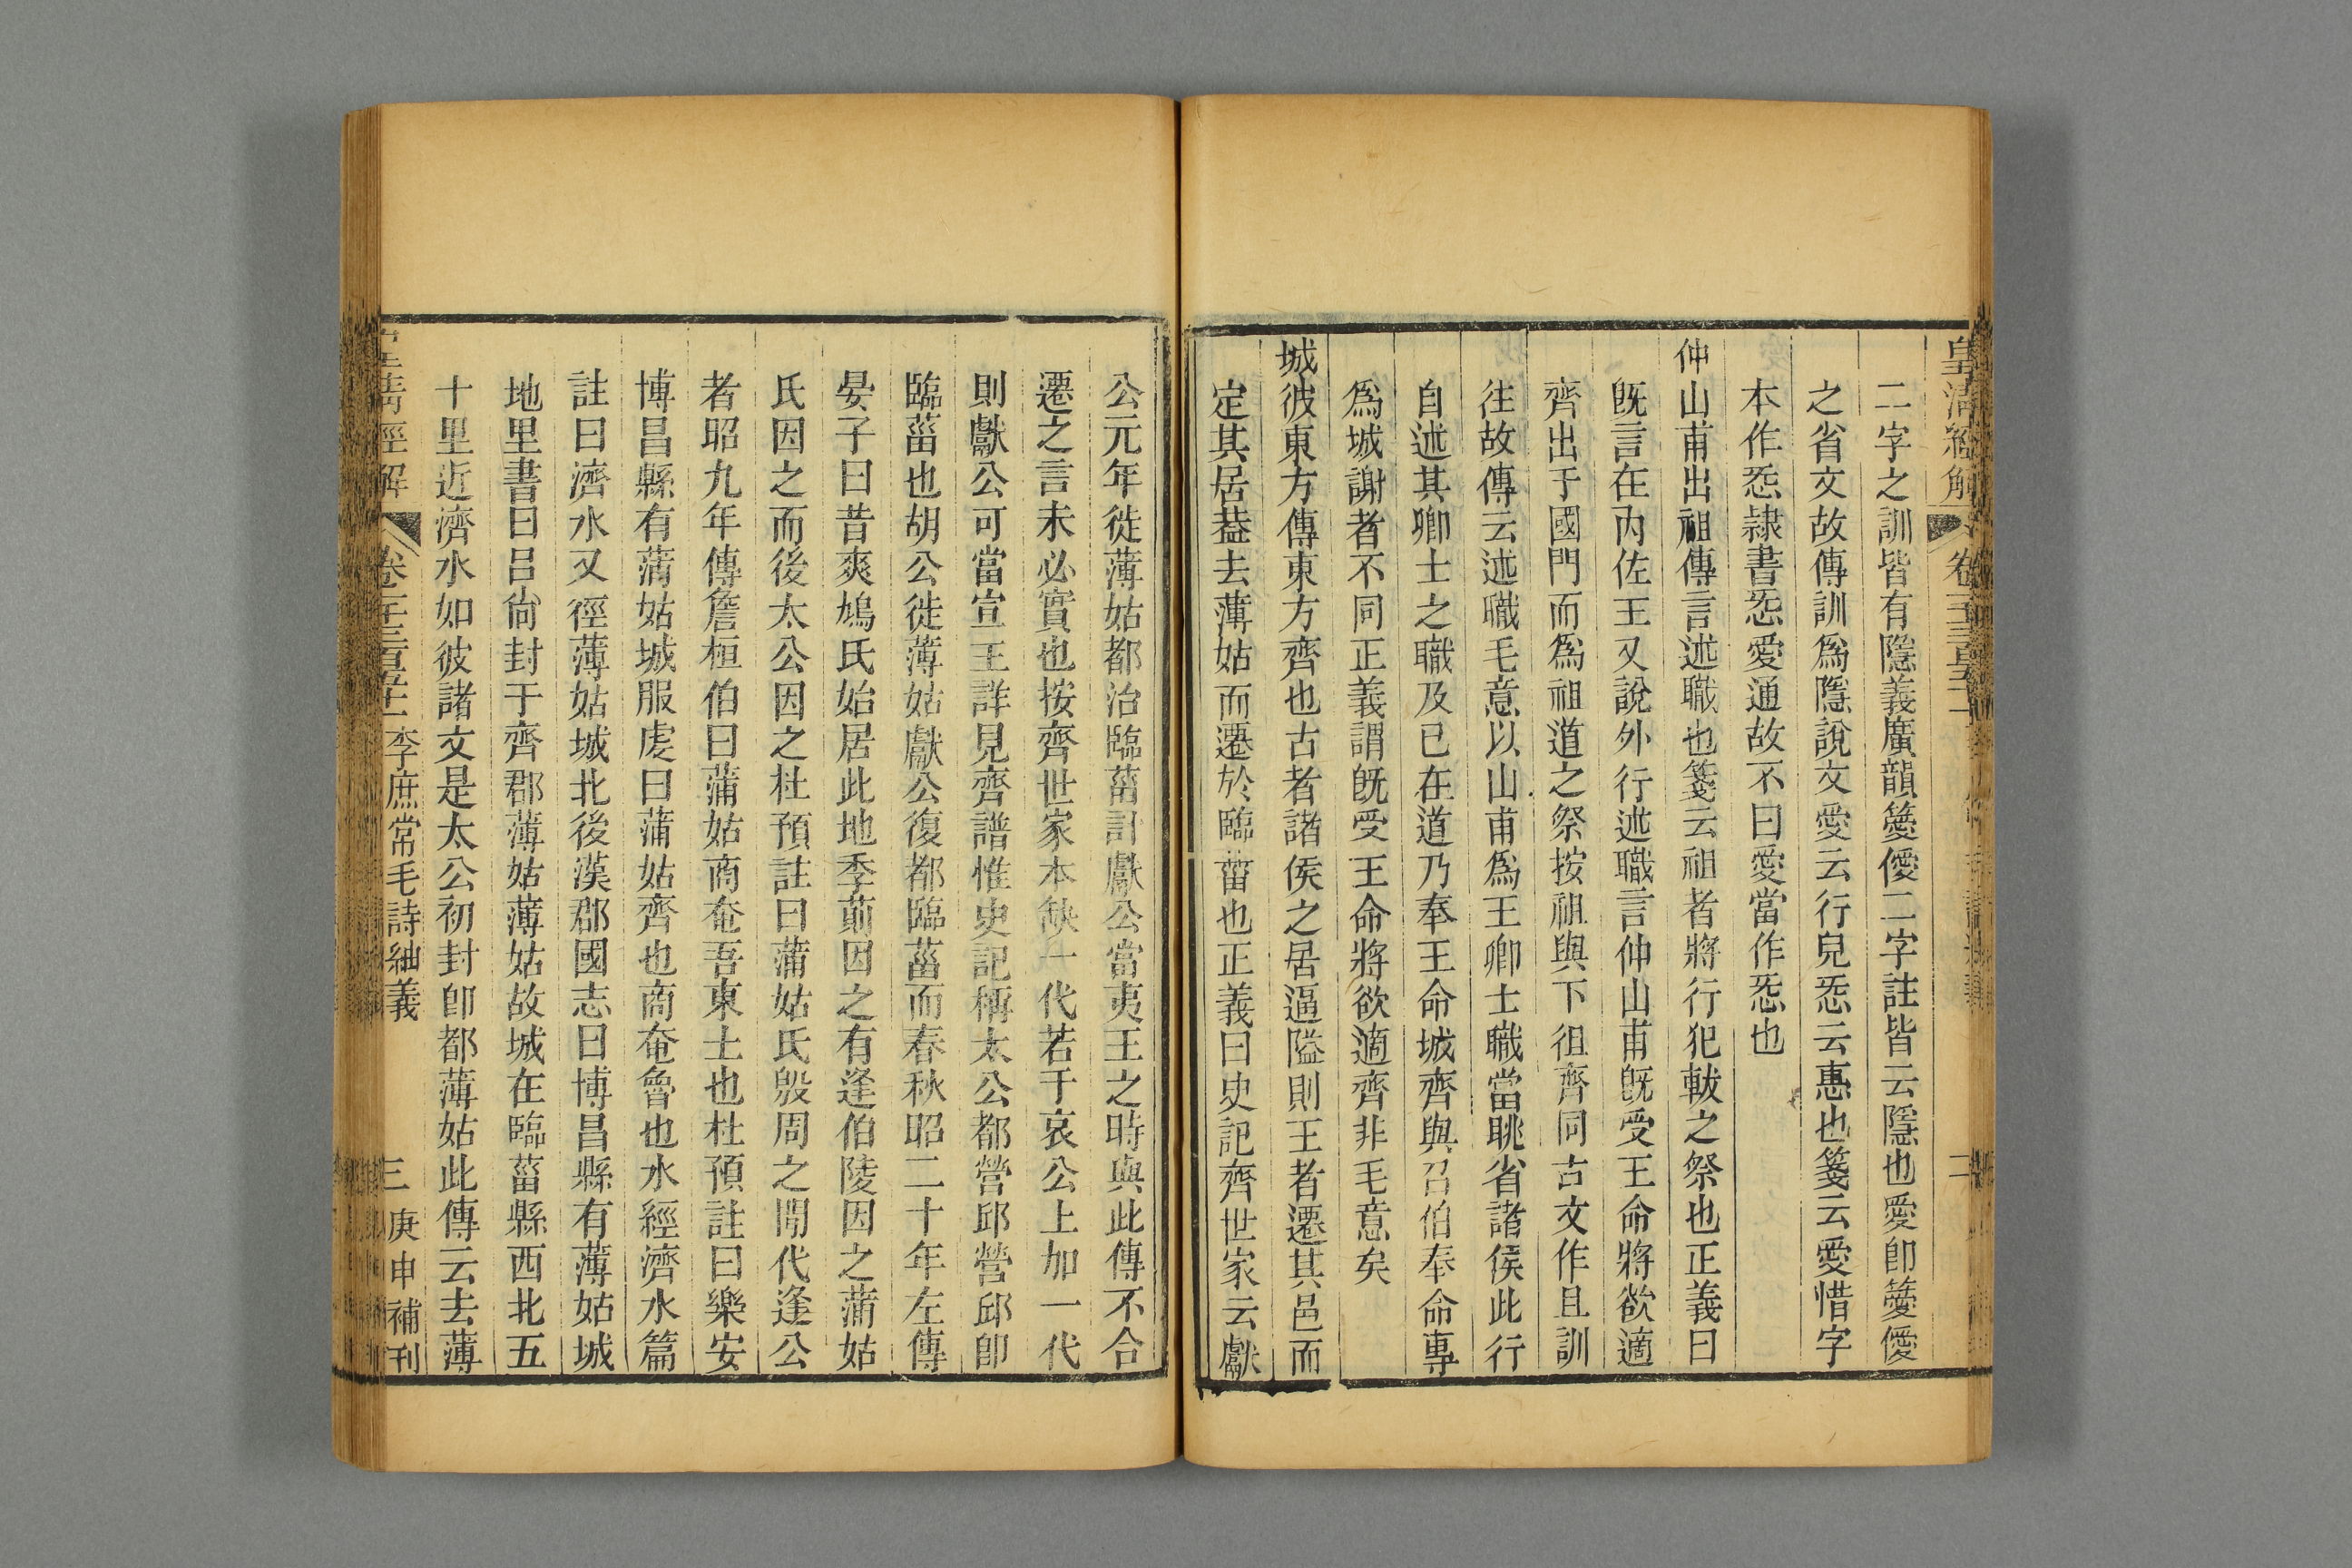 皇清經解
二
二字之訓皆有隱義廣韻薆僾二字註皆云隱也愛卽薆僾
之省文故傳訓爲隱說文愛云行皃㤅云惠也箋云愛惜字
本作㤅隷書㤅愛通故不曰愛當作㤅也
仲山甫出祖傳言述職也箋云祖者將行犯軷之祭也正義曰
旣言在內佐王又說外行述職言仲山甫旣受王命將欲適
齊出于國門而爲祖道之祭按祖與下徂齊同古文作且訓
往故傳云述職毛意以山甫爲王卿士職當眺省諸侯此行
自述其卿士之職及已在道乃奉王命城齊與召伯奉命專
爲城謝者不同正義謂旣受王命將欲適齊非毛意矣
城彼東方傳東方齊也古者諸侯之居逼隘則王者遷其邑而
定其居葢去薄姑而遷於臨菑也正義曰史記齊世家云獻
公元年徙薄姑都治臨菑計獻公當夷王之時與此傳不合
遷之言未必實也按齊世家本缺一代若于哀公上加一代
則獻公可當宣王詳見齊譜惟史記稱太公都營邱營邱卽
臨菑也胡公徙薄姑獻公復都臨菑而春秋昭二十年左傳
晏子曰昔爽鳩氏始居此地季萴因之有逢伯陵因之蒲姑
氏因之而後太公因之杜預註曰蒲姑氏殷周之閒代逢公
者昭九年傳詹桓伯曰蒲姑商奄吾東土也杜預註曰樂安
博昌縣有蒲姑城服虔曰蒲姑齊也商奄魯也水經濟水篇
註曰濟水又徑薄姑城北後漢郡國志曰博昌縣有薄姑城
地里書曰呂尙封于齊郡薄姑薄姑故城在臨菑縣西北五
十里近濟水如彼諸文是太公初封卽都薄姑此傳云去薄
清經解 李庶常毛詩紬義 三 庚申補刊